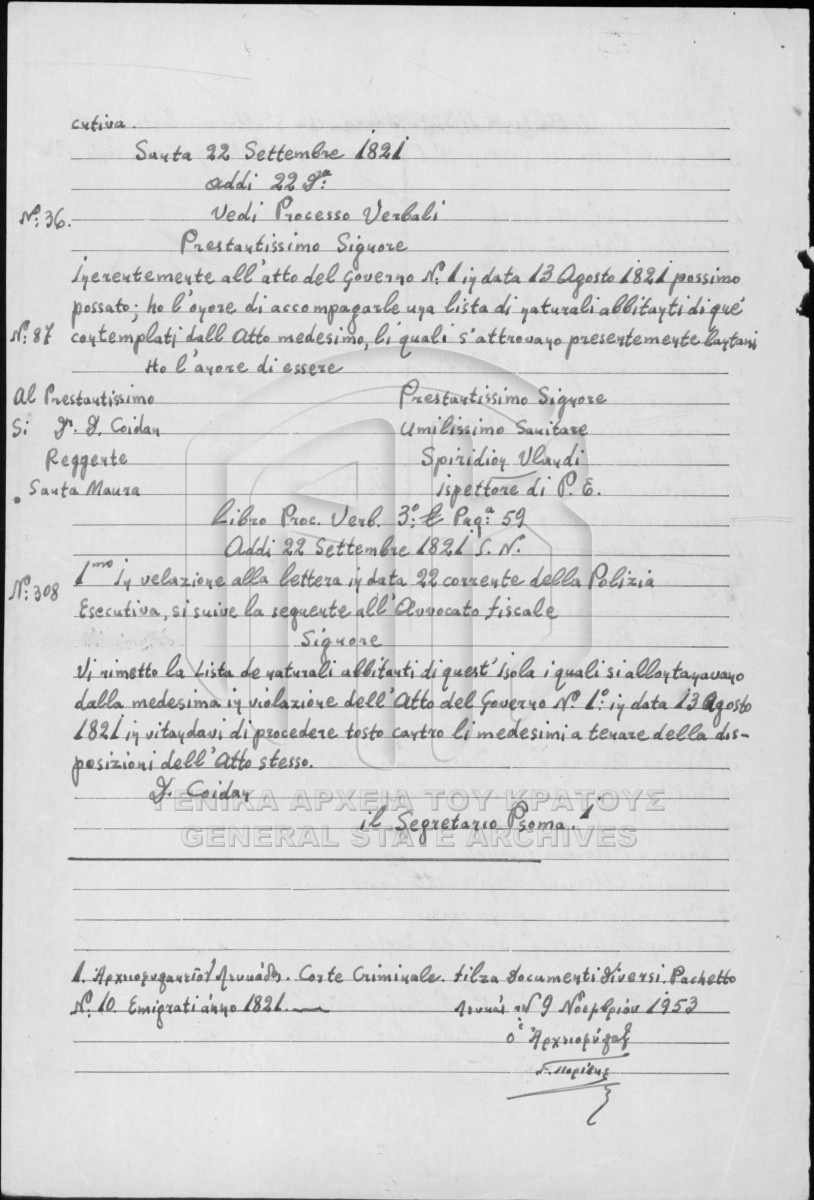 cutiva.
Santa 22 Settembre 1821
addi 22 Dª:
Nº: 36. Vedi Processo Verbali
Prestantissimo Signore
Inerentemente all'atto del Governo Nº 1 in data 13 Agosto 1821 possimo
possato; ho l'onore di accompagarle una lista di naturali abbitanti di què
Nº: 87 contemplati dall Atto medesimo, li quali s'attrovano presentemente lantani
Ho l'anore di essere
Al Prestantissimo Prestantissimo Signore
Si Dr. D. Coidan Umilissimo Sanitare
Reggente Spiridion Vlandi
Santa Maura ispettore di P. E.
Libro Proc. Verb. 3º: Pagª: 59
Addi 22 Settembre 1821 S. N.
Nº: 308 1mo In velazione alla lettera in data 22 corrente della Polizia
Esecutiva, si suive la seguente all'Avvocato fiscale
Signore
Vi rimetto la Lista de naturali abbitanti di quest'isola i quali si allontanavano
dalla medesima in violazione dell'Atto del Governo Nº 1º: in data 13 Agosto
1821 in vitandavi di procedere tosto cantro li medesimi a tenare della dis-
posizioni dell'Atto stesso.
D. Coidan
il Segretario Psoma. 1
ΓΕΝΙΚΑ ΑΡΧΕΙΑ ΤΟΥ ΚΡΑΤΟΥΣ
GENERAL STATE ARCHIVES
1. Αρχειοφυλακείον Λευκάδος. Corte Criminale. filza Documenti Diversi. Pachetto
Nº: 10. Emigrati ànno 1821.
Λευκάς τη 9 Νοεμβρίου 1953
ὁ Ἀρχειοφύλαξ